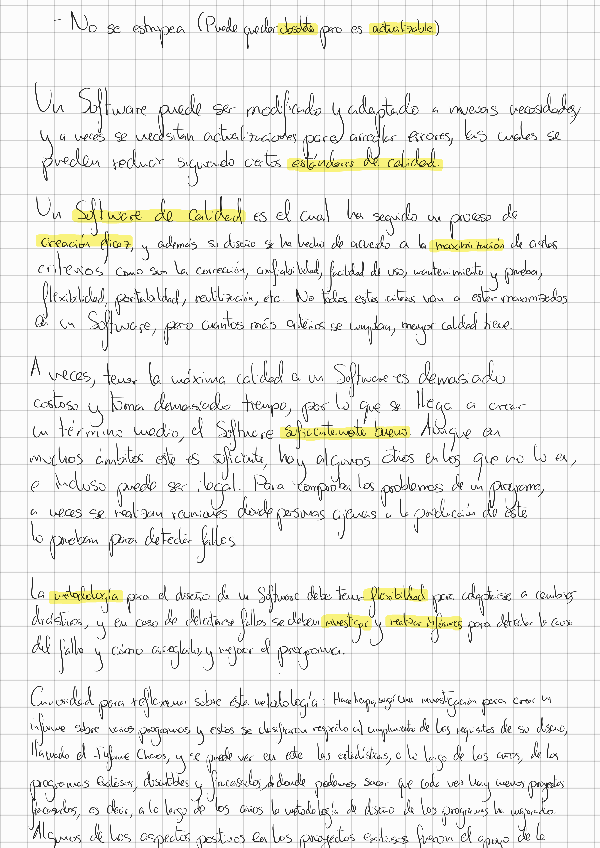 - No se estropea (Puede quedar obsoleto pero es actualizable)
Un Software puede ser modificado y adaptado a nuevas necesidades,
y a veces se necesitan actualizaciones para arreglar errores, las cuales se
pueden reducir siguiendo ciertos estándares de calidad.
Un Software de Calidad es el cual ha seguido un proceso de
creación eficaz, y además su diseño se ha hecho de acuerdo a la maximización de ciertos
criterios como son la corrección, confiabilidad, facilidad de uso, mantenimiento y prueba,
flexibilidad, portabilidad, reutilización, etc. No todos estos criterios van a estar maximizados
en un Software, pero cuantos más criterios se cumplan, mayor calidad tiene.
A veces, tener la máxima calidad a un Software es demasiado
costoso y toma demasiado tiempo, por lo que se llega a crear
un término medio, el Software suficientemente bueno. Aunque en
muchos ámbitos este es suficiente, hay algunos otros en los que no lo es,
e incluso puede ser ilegal. Para comprobar los problemas de un programa,
a veces se realizan reuniones donde personas ajenas a la producción de este
lo prueban para detectar fallos
La metodología para el diseño de un Software debe tener flexibilidad para adaptarse a cambios
drásticos, y en caso de detectarse fallos se deben investigar y realizar informes para detectar la causa
del fallo y cómo arreglarlo y mejorar el programa.
Curiosidad para reflexionar sobre esta metodología: Hace tiempo, surgió una investigación para crear un
informe sobre varios programas y estos se clasificaron respecto al cumplimiento de los requisitos de su diseño,
llamado el Informe Chaos, y se puede ver en este las estadísticas, a lo largo de los años, de los
programas exitosos, discutibles y fracasados, donde podemos sacar que cada vez hay menos proyectos
fracasados, es decir, a lo largo de los años la metodología de diseño de los programas ha mejorado.
Algunos de los aspectos positivos en los proyectos exitosos fueron el apoyo de la